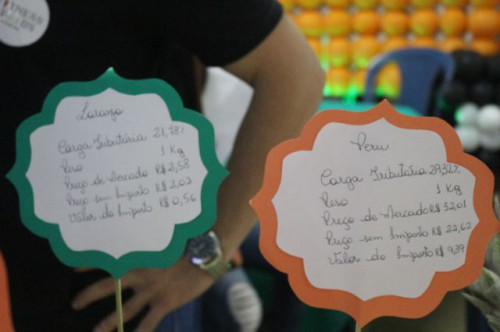 Laranja
Carga Tributária 21,78%
Peso 1 Kg
Preço de Mercado R$ 2,58
Preço sem Imposto R$ 2,02
Valor do Imposto R$ 0,56
Peru
Carga Tributária 29,32%
Peso 1 Kg
Preço de Mercado R$ 32,01
Preço sem Imposto R$ 22,62
Valor do Imposto R$ 9,39